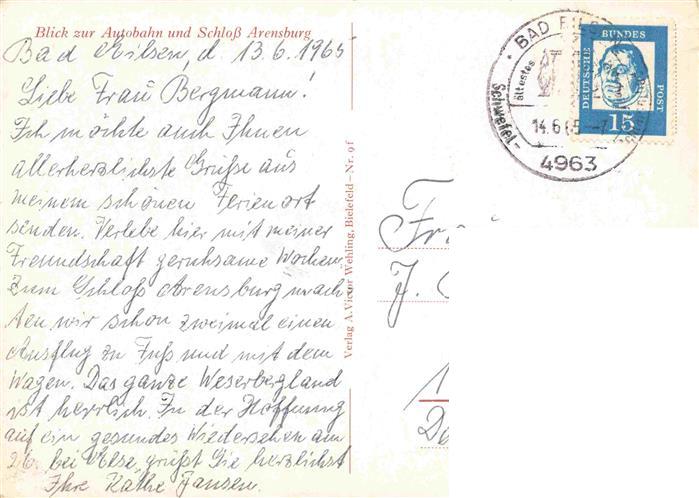 Blick zur Autobahn und Schloß Arensburg
Bad Eilsen, d. 13.6.1965
Liebe Frau Bergmann!
Ich möchte auch Ihnen
allerherzlichste Grüße aus
meinem schönen Ferienort
senden. Verlebe hier mit meiner
Freundschaft geruhsame Wochen.
Zum Schloß Arensburg mach
ten wir schon zweimal einen
Ausflug zu Fuß und mit dem
Wagen. Das ganze Weserbergland
ist herrlich. In der Hoffnung
auf ein gesundes Wiedersehen am
26. bei grüßt Sie herzlichst
Ihre Käthe Jansen.
Verlag A. Victor Wehling, Bielefeld – Nr. 9f
BAD EILS
ältestes
Schwefel-
14.6.65 –7
4963
DEUTSCHE BUNDES POST
15
Fr
J.
1